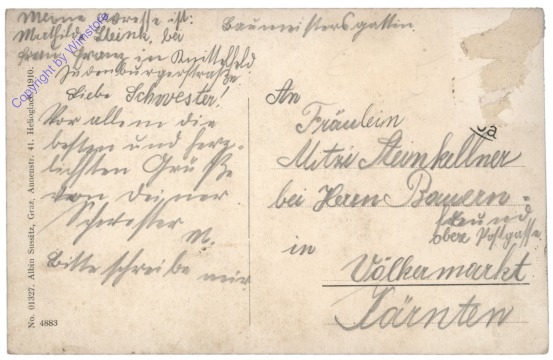 Meine Adresse ist:
Mathilde Steink, bei
Frau Franz in Knittelfeld
Judenburgerstraße.
Baumeistersgattin
Liebe Schwester!
Vor allem die
besten und herz-
lichsten Grüße
von Deiner
Schwester
M.
Bitte schreibe mir
An
Fräulein
Mitzi Steinkellner
bei Herrn Bauern=
in
obere Postgasse.
Völkermarkt
Kärnten
No. 01327. Albin Sussitz, Graz, Annenstr. 41. Heliogloria 1910.
4883
Copyright by Wimstore